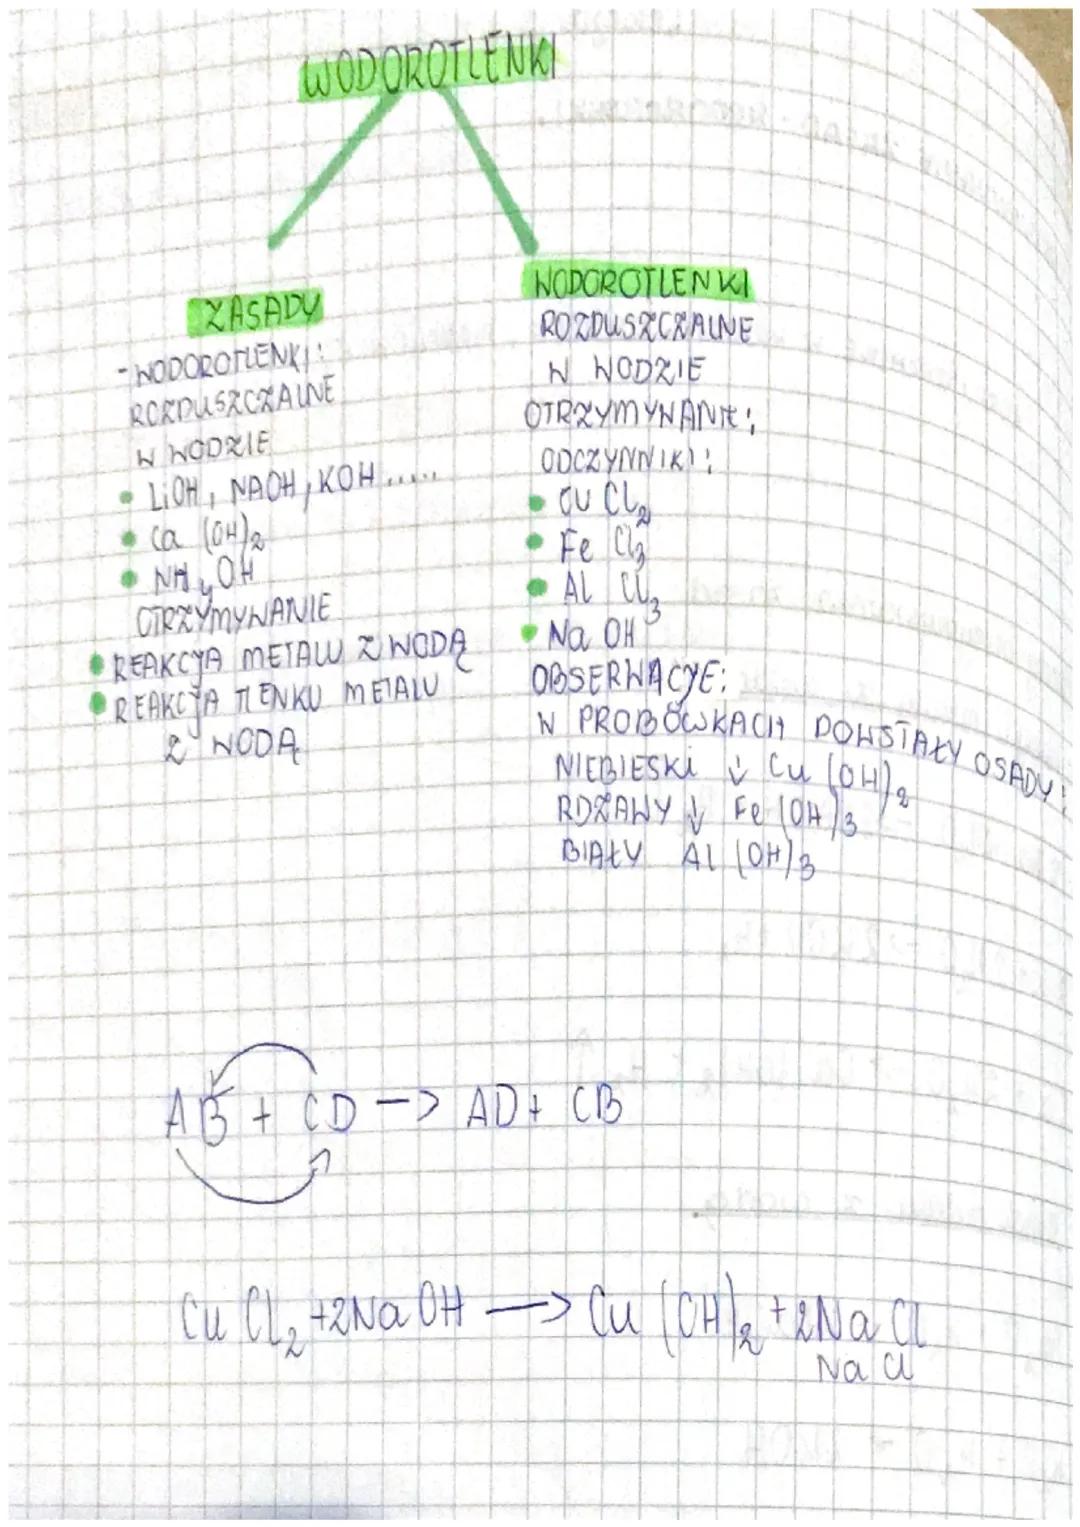 WODOROTLENKI
ZASADY
- WODOROTLENKI:
ROZPUSZCZALNE
W WODZIE
• LiOH, NAOH, KOH .....
• Ca (OH)2
• NH4OH
OTRZYMYWANIE
• REAKCJA METALU Z WODĄ
• REAKCJA TLENKU METALU
Z WODĄ
WODOROTLENKI
ROZPUSZCZALNE
W WODZIE
OTRZYMYWANIE:
ODCZYNNIKI:
• CU Cl2
• Fe Cl3
• Al Cl3
• Na OH
OBSERWACJE:
W PROBÓWKACH POWSTAŁY OSADY:
NIEBIESKI ↓ Cu (OH)2
RDZAWY ↓ Fe (OH)3
BIAŁY Al (OH)3
AB + CD -> AD + CB
Cu Cl2 +2Na OH -> Cu (OH)2 +2Na Cl
Na Cl